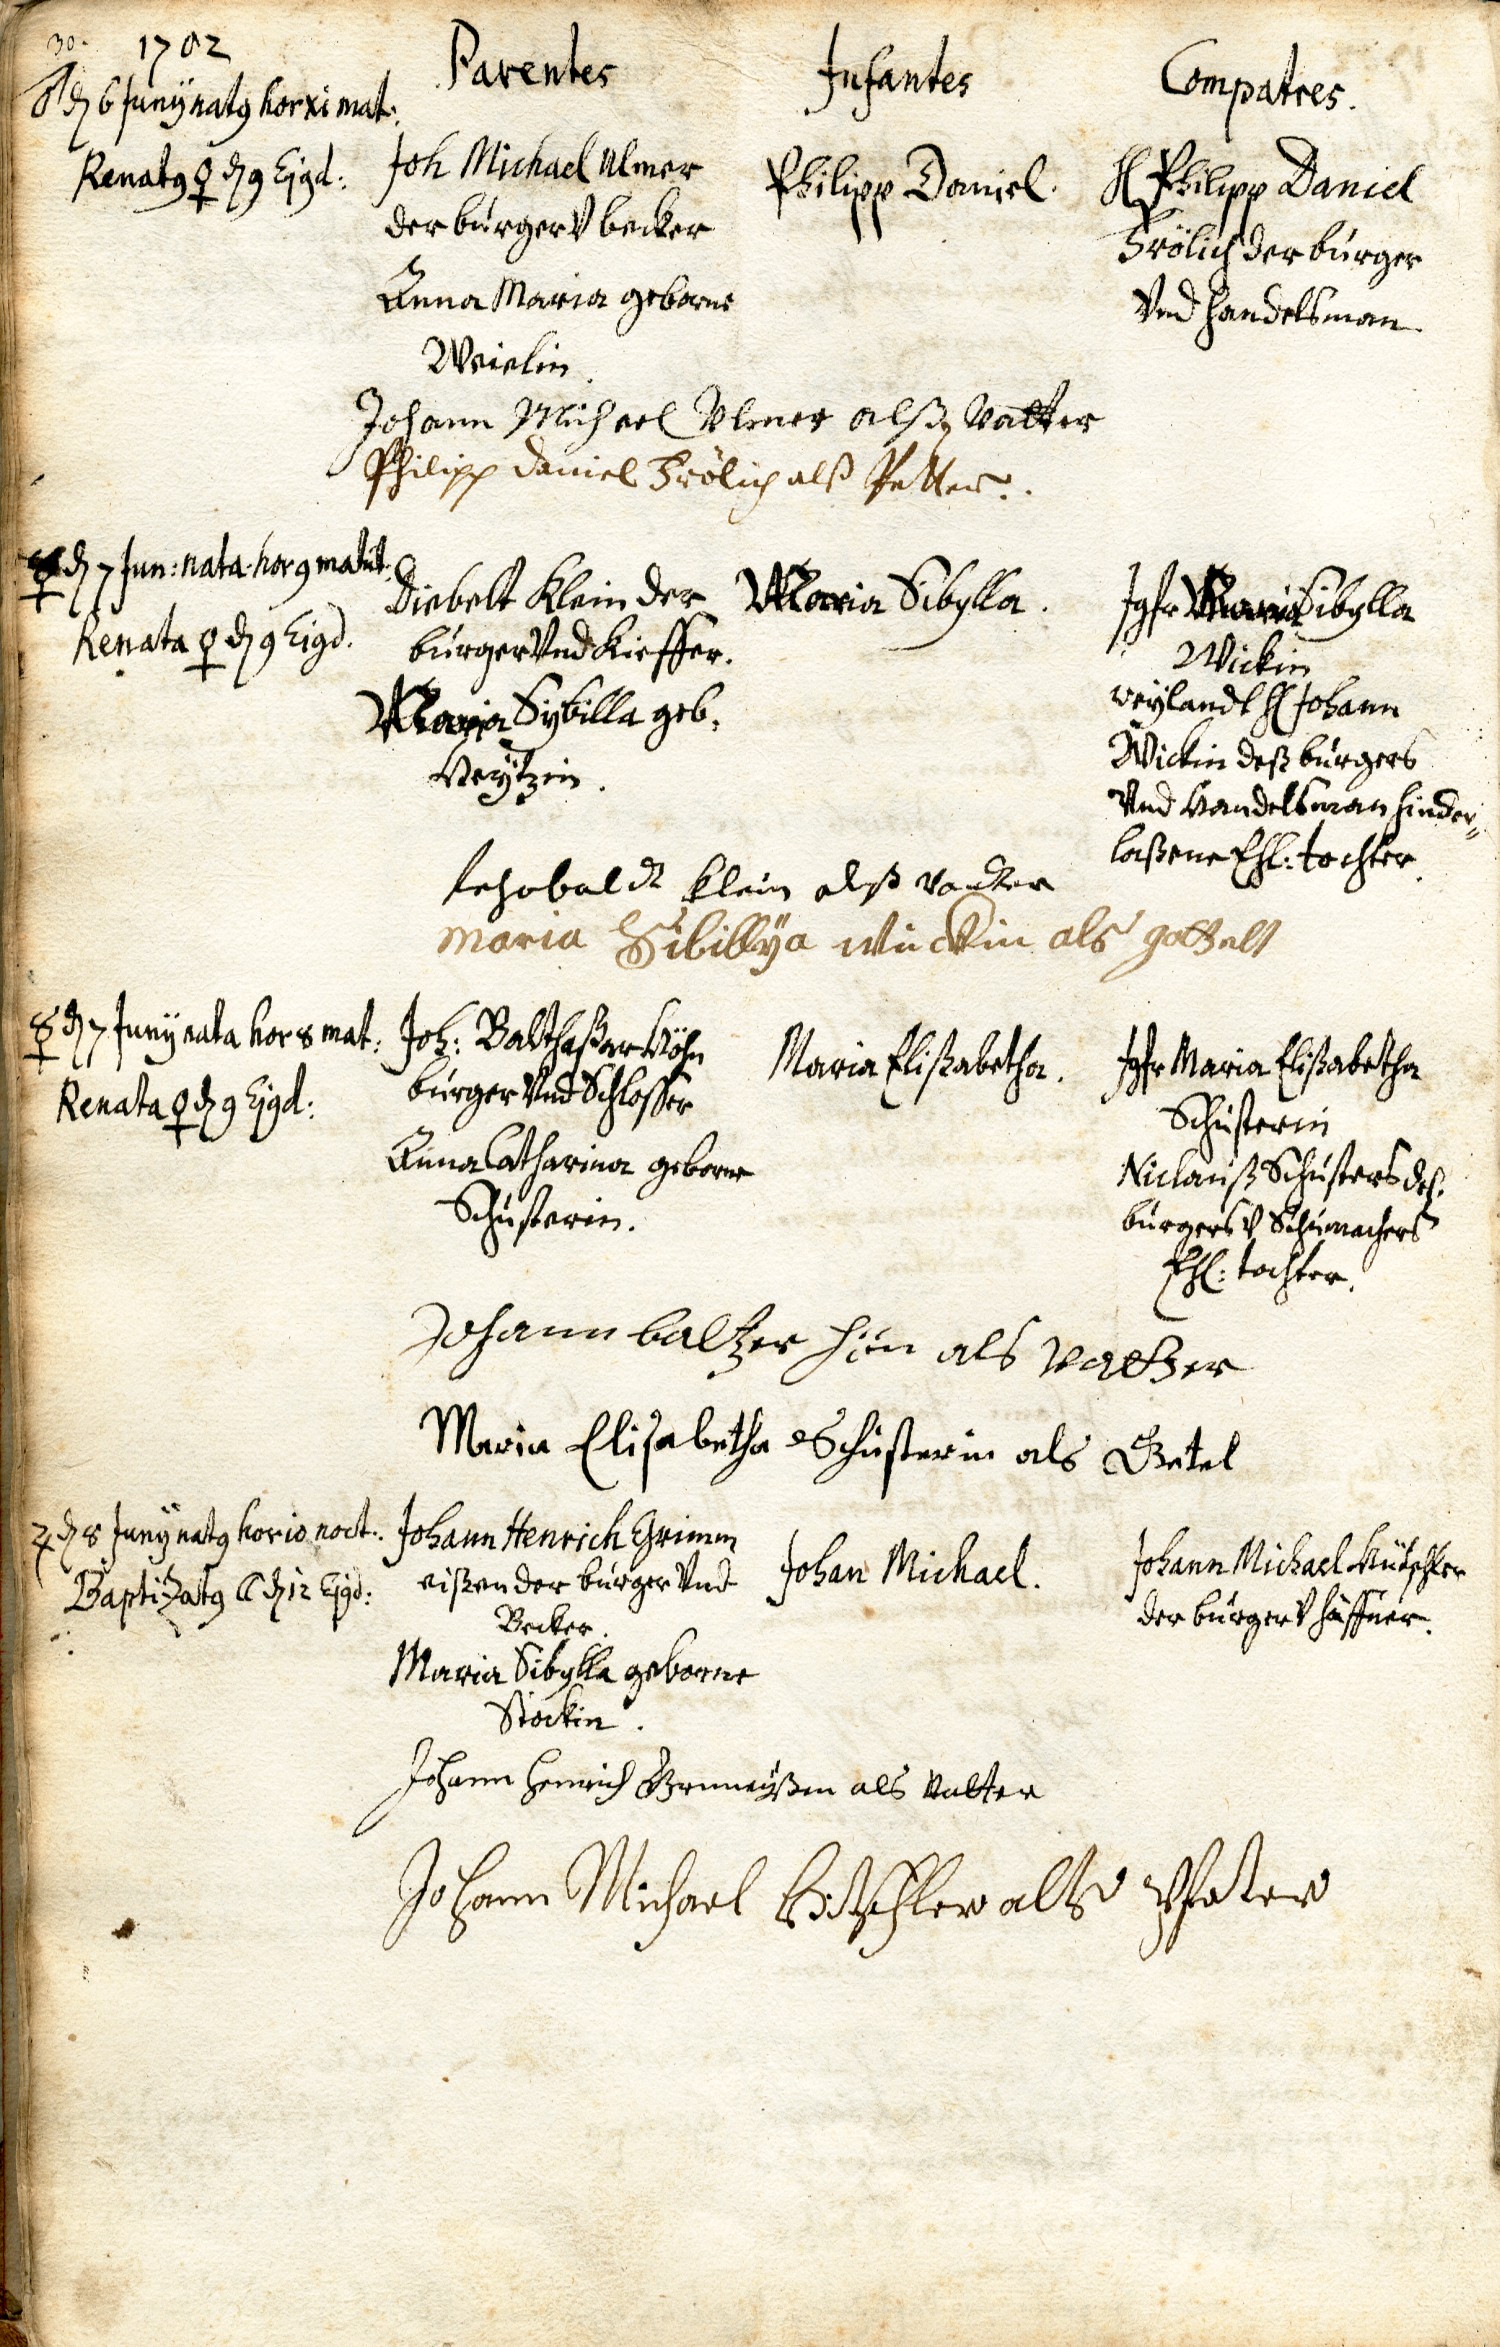 30. 1702
Parentes
Infantes
Compatres.
♂ dē 6 Junÿ natg hor xi mat:
Renatg ♀ dē 9 Ejgd:
Joh Michael Ulmer
der bürger V becker
Anna Maria geborne
Weielin.
Philipp Daniel.
H Philipp Daniel
Frölich der bürger
Vnd handelsman
Johann Michael Vlmer alß Vatter
Philipp Daniel Frölich alß Petter.
☿ dē 7 Jun: nata hor 9 matut.
Renata ♀ dē 9 Ejgd.
Diebelt Klein der
bürger Vnd Kieffer.
Maria Sybilla geb.
Veÿtzin.
Maria Sibylla.
Jgfr Maria Sibylla
Wickin
weylandt H Johann
Wickin deß bürgers
Vnd Handelsman hinder-
laßene Ehl: tochter.
tehobaldt klein alß vadter
maria Sibillÿa wickin als gottelt
☿ dē 7 Junÿ nata hor 8 mat:
Renata ♀ dē 9 Ejgd:
Joh: Balthaßar Höhn
bürger Vnd Schlosser
Anna Catharina geborne
Schüsterin.
Maria Elißabetha.
Jgfr Maria Elißabetha
Schüsterin
Niclauß Schüsters deß
bürgers V Schümachers
Ehl: tochter.
Johann baltzer hön als vatter
Maria Elisabetha Schüsterin als Getel
♃ dē 8 Junÿ natg hor 10 noct.
Baptizatg ☾ dē 12 Ejgd:
Johann Henrich Grimm
eißen der bürger Vnd
Becker.
Maria Sibylla geborne
Stöckin.
Johan Michael.
Johann Michael Kütschler
der bürger V häffner.
Johann Henrich Grimeÿßen als Vatter
Johann Michael als Pfeter